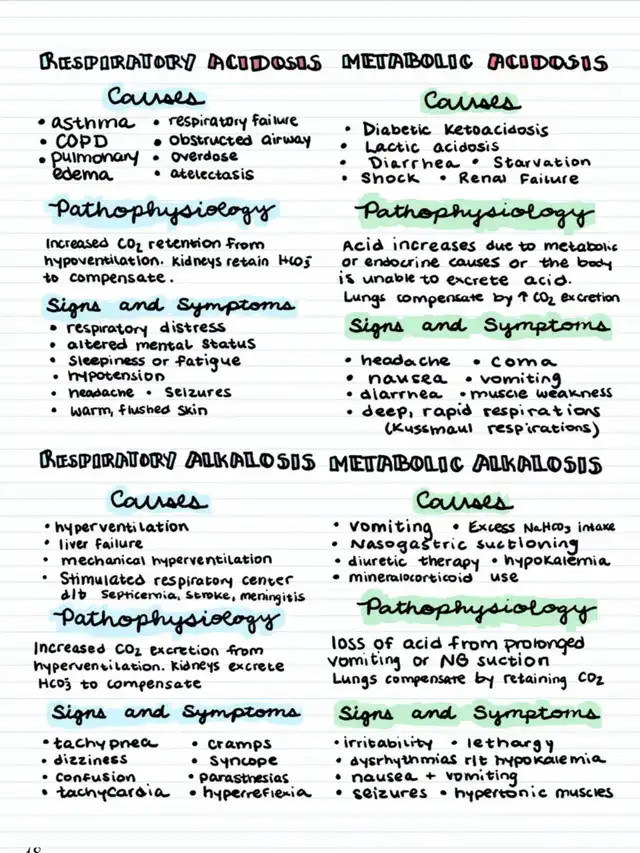 RESPIRATORY ACIDOSIS
Causes
• asthma • respiratory failure
• COPD • obstructed airway
• pulmonary edema • overdose
• atelectasis
Pathophysiology
Increased CO₂ retention from
hypoventilation. Kidneys retain HCO₃⁻
to compensate.
Signs and Symptoms
• respiratory distress
• altered mental status
• Sleepiness or fatigue
• hypotension
• headache • Seizures
• warm, flushed skin
METABOLIC ACIDOSIS
Causes
• Diabetic Ketoacidosis
• Lactic acidosis
• Diarrhea • Starvation
• Shock • Renal Failure
Pathophysiology
Acid increases due to metabolic
or endocrine causes or the body
is unable to excrete acid.
Lungs compensate by ↑ CO₂ excretion
Signs and Symptoms
• headache • coma
• nausea • vomiting
• diarrhea • muscle weakness
• deep, rapid respirations
(Kussmaul respirations)
RESPIRATORY ALKALOSIS
Causes
• hyperventilation
• liver failure
• mechanical hyperventilation
• Stimulated respiratory center
d/t Septicemia, Stroke, meningitis
Pathophysiology
Increased CO₂ excretion from
hyperventilation. Kidneys excrete
HCO₃⁻ to compensate
Signs and Symptoms
• tachypnea • cramps
• dizziness • syncope
• confusion • parasthesias
• tachycardia • hyperreflexia
METABOLIC ALKALOSIS
Causes
• vomiting • Excess NaHCO₃ intake
• Nasogastric suctioning
• diuretic therapy • hypokalemia
• mineralocorticoid use
Pathophysiology
loss of acid from prolonged
vomiting or NG suction
Lungs compensate by retaining CO₂
Signs and Symptoms
• irritability • lethargy
• dysrhythmias r/t hypokalemia
• nausea + vomiting
• seizures • hypertonic muscles
18